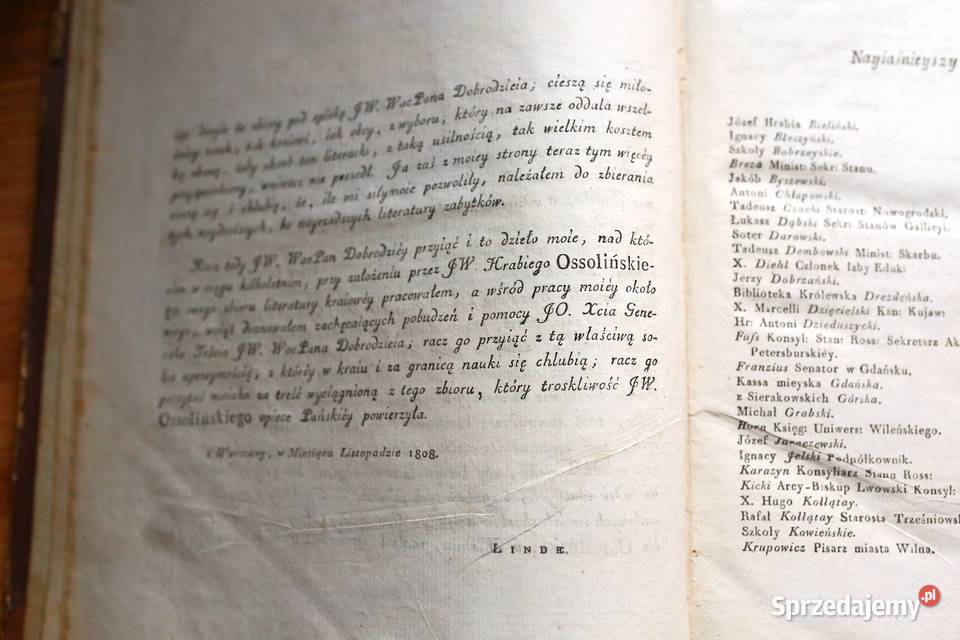 pod opiekę JW. WacPana Dobrodzieia; cieszą się miło-
nauk, tak kraiowi, iak obcy, z wyboru, który na zawsze oddala wszel-
kę obawę, żeby skarb ten literacki, z taką usilnością, tak wielkim kosztem
przysposobiony, wniwecz nie poszedł. Ja zaś z moiey strony teraz tym więcéy
się i chlubię, że, ile mi siły moie pozwoliły, należałem do zbierania
tych naydroższych, bo nayrzadszych literatury zabytków.
Racz tedy JW. WacPan Dobrodziéy przyiąć i to dzieło moie, nad któ-
rém w ciągu kilkoletnim, przy założeniu przez JW Hrabiego Ossolińskie-
go swego zbioru literatury kraiowéy pracowałem, a wśród pracy moiéy około
niego, wciąż doznawałem zachęcaiących pobudzeń i pomocy JO. Xcia Gene-
rała Teścia JW. WacPana Dobrodzieia; racz go przyiąć z tą właściwą so-
bie uprzeymością, z któréy w kraiu i za granicą nauki się chlubią; racz go
przyiąć niejako za treść wyciągnioną z tego zbioru, który troskliwość JW.
Ossolińskiego opiece Pańskiéy powierzyła.
z Warszawy, w Miesiącu Listopadzie 1808.
LINDE.
Nayiaśnieyszy
Józef Hrabia Bieliński.
Ignacy Bleszyński.
Szkoły Bobrzeyskie.
Breza Minist: Sekr: Stanu.
Jakób Byszewski.
Antoni Chłapowski.
Tadeusz Czacki Starost: Nowogrodski.
Łukasz Dąbski Sekr: Stanów Gallicyi.
Soter Darowski.
Tadeusz Dembowski Minist: Skarbu.
X. Diehl Członek Izby Eduk:
Jerzy Dobrzański.
Biblioteka Królewska Drezdeńska.
X. Marcelli Dzięcielski Kan: Kujaw:
Hr: Antoni Dzieduszycki.
Fuss Konsyl: Stan: Ross: Sekretarz Ak
Petersburskiéy.
Franzius Senator w Gdańsku.
Kassa mieyska Gdańska.
z Sierakowskich Górska.
Michał Grabski.
Horn Księg: Uniwers: Wileńskiego.
Józef Juraczewski.
Ignacy Jelski Podpółkownik.
Karazyn Konsyliarz Stanu Ross:
Kicki Arcy-Biskup Lwowski Konsyl:
X. Hugo Kołłątay.
Rafał Kołłątay Starosta Trześniowsk
Szkoły Kowieńskie.
Krupowicz Pisarz miasta Wilna.
Sprzedajemy.pl